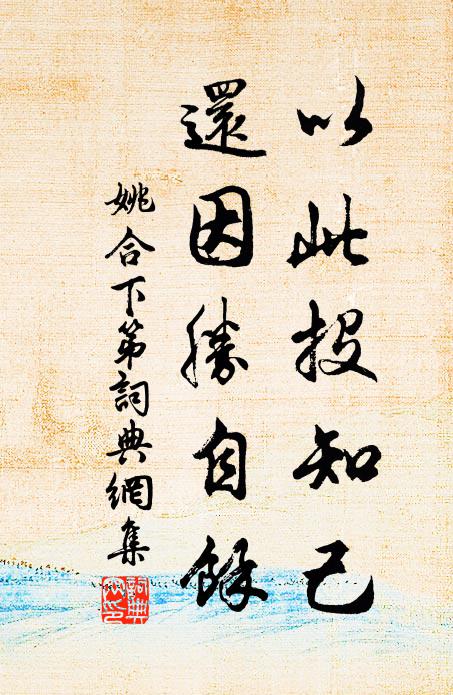 以此投知己
還因勝自餘
姚合下第詞典網集